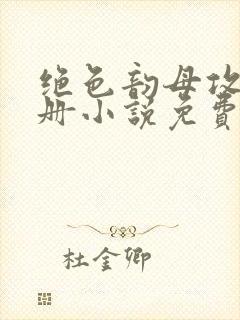 绝色韵母攻
册小说免费
杜金卿